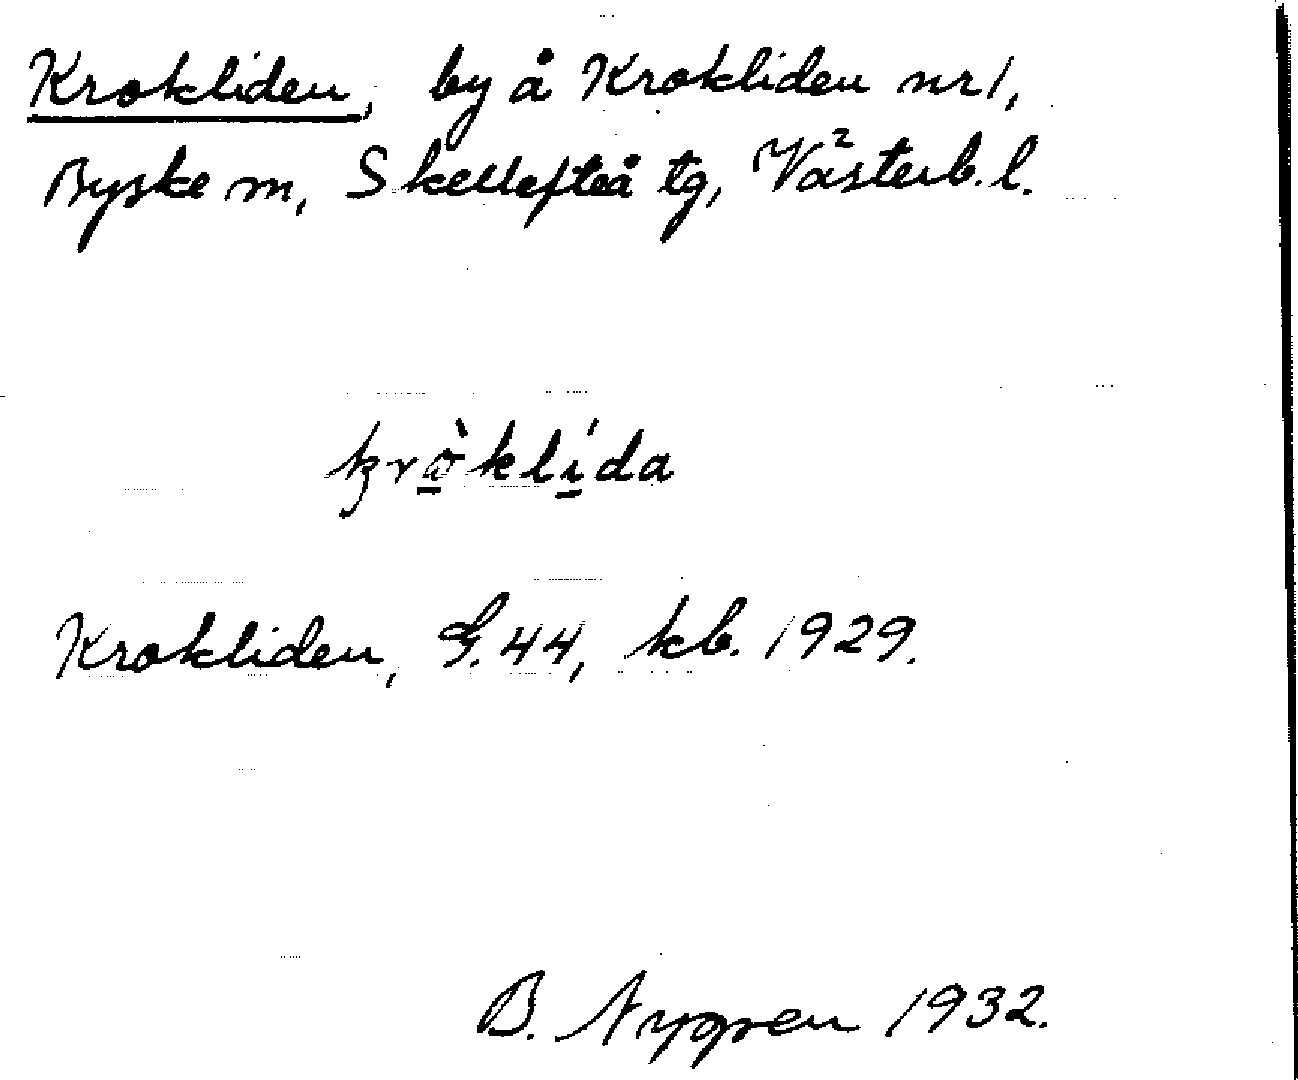 Krokliden, by å Krokliden nr 1,
Byske sn, Skellefteå tg, Västerb. l.
krò̱klí̱da
Krokliden, G. 44, kb. 1929.
B. Nygren 1932.